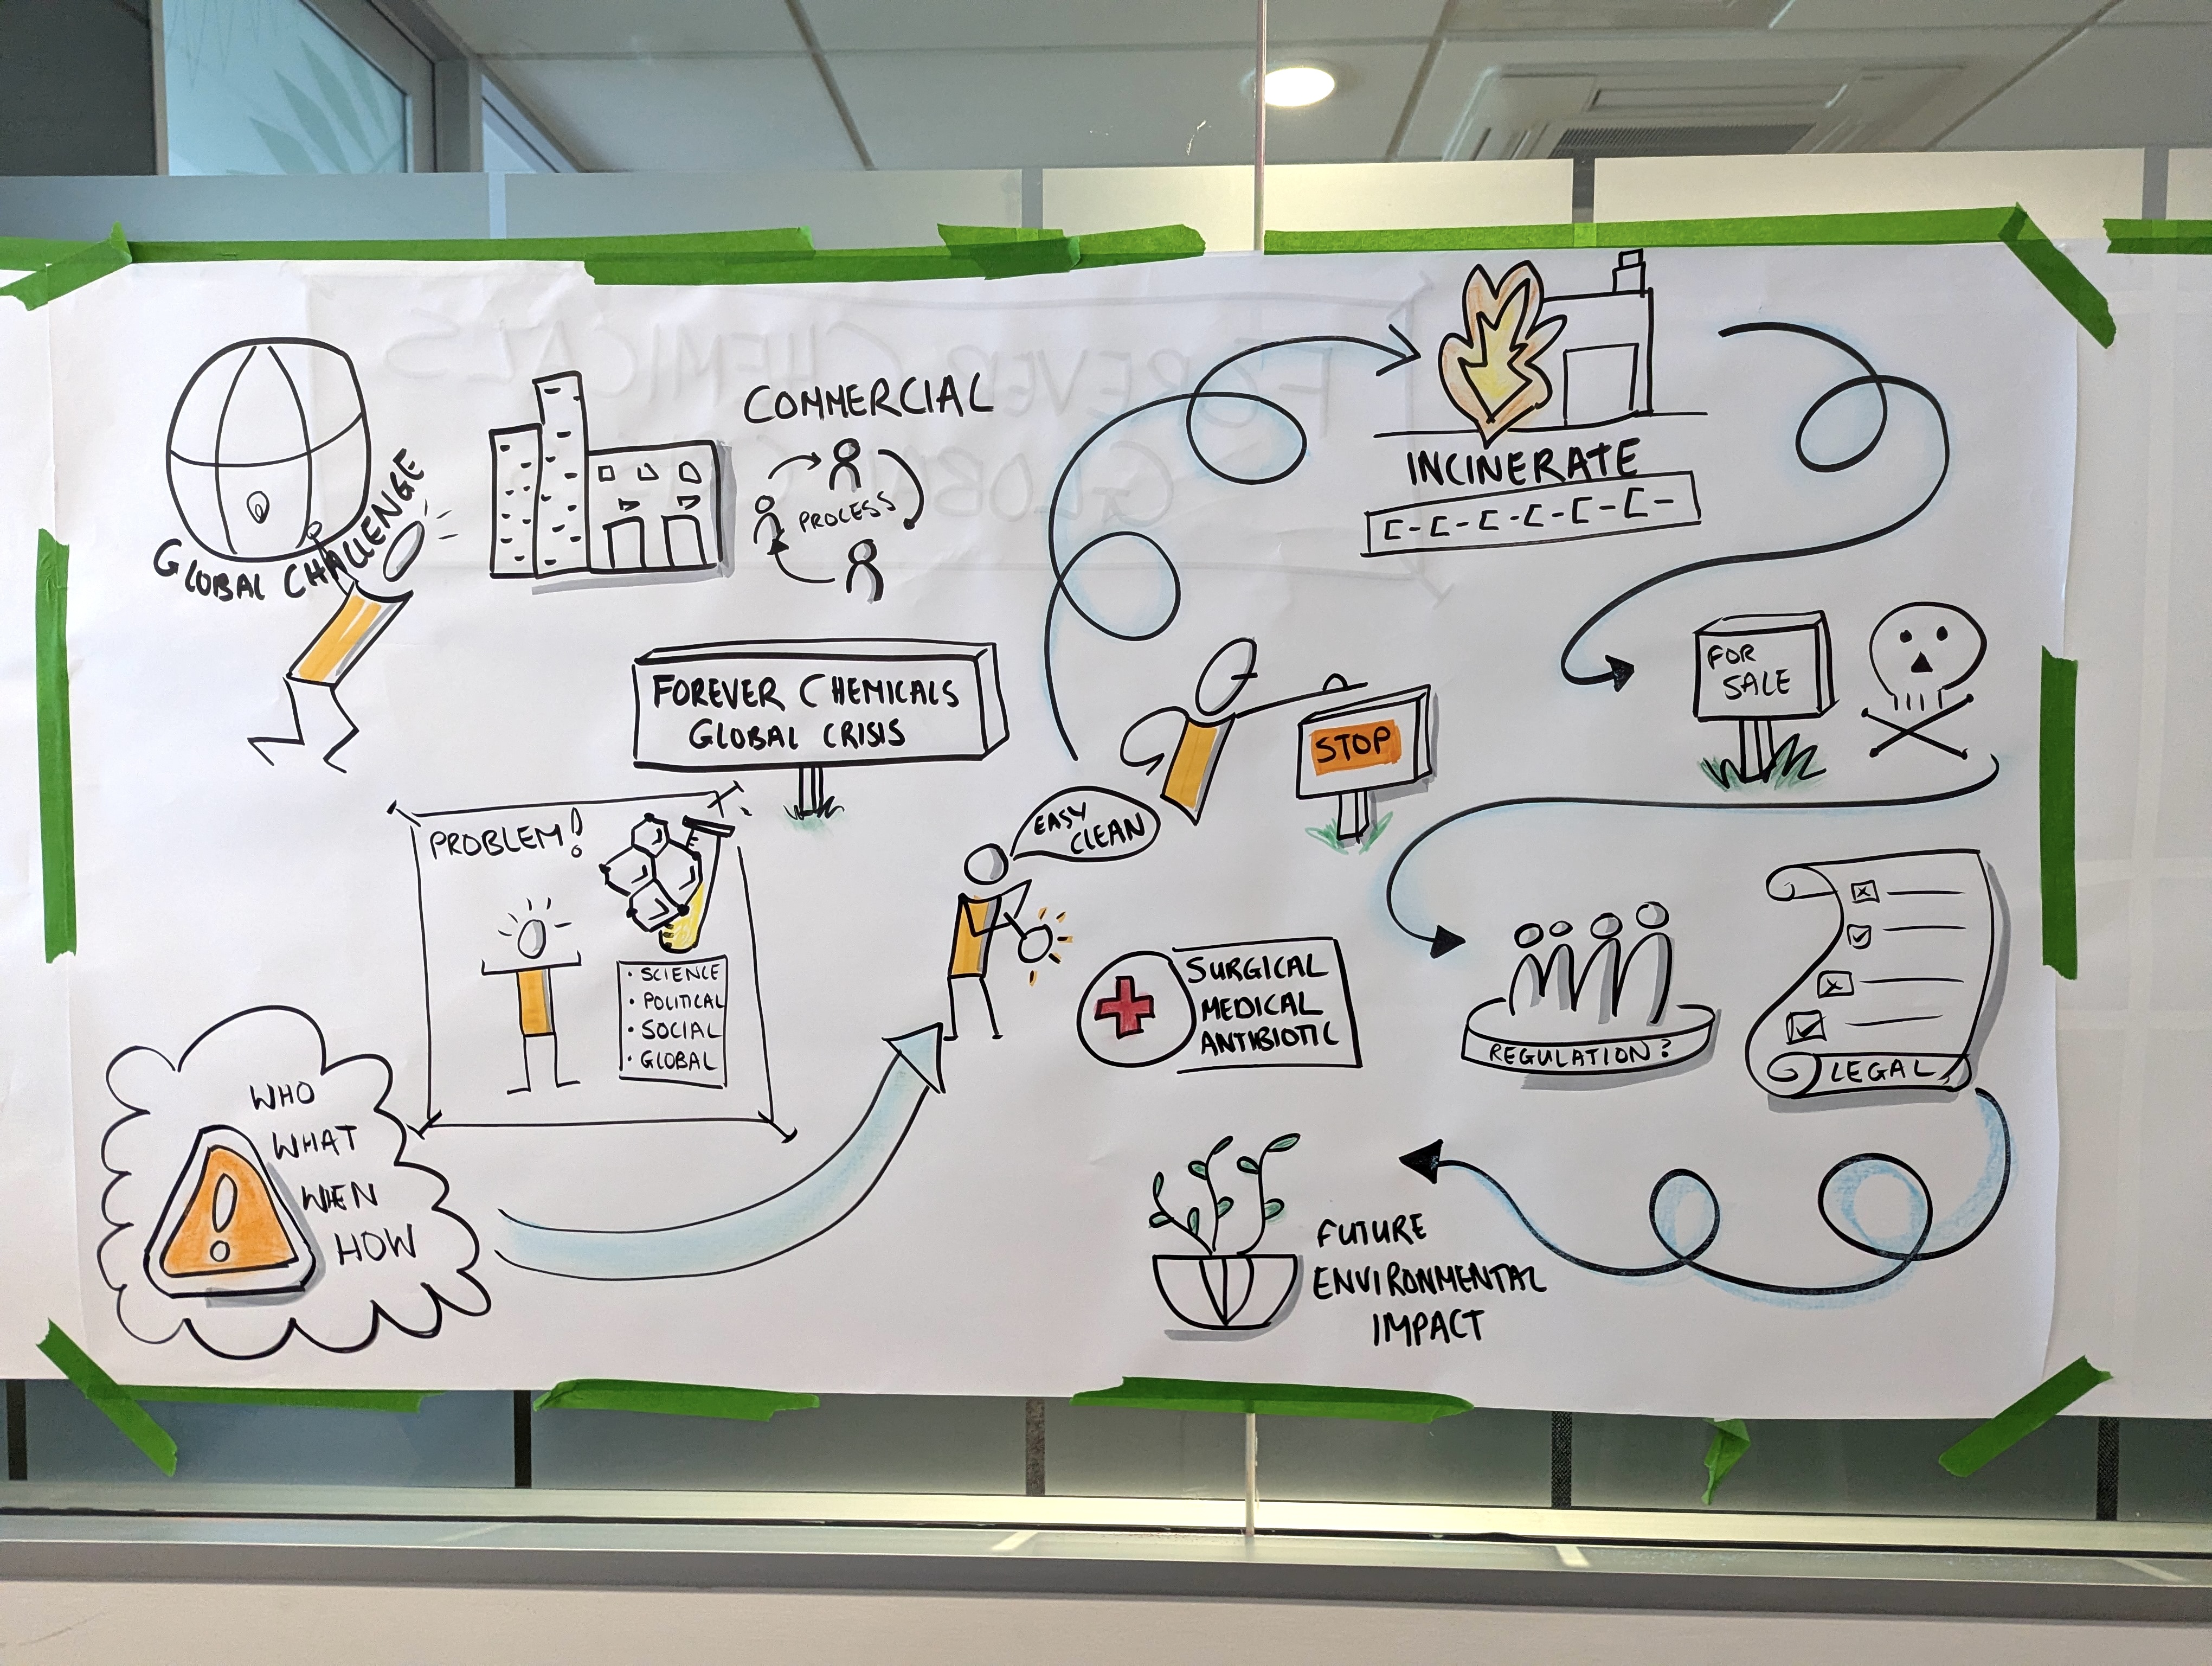 GLOBAL CHALLENGE
COMMERCIAL
PROCESS
FOREVER CHEMICALS
GLOBAL CRISIS
PROBLEM!
• SCIENCE
• POLITICAL
• SOCIAL
• GLOBAL
WHO
WHAT
WHEN
HOW
EASY
CLEAN
STOP
INCINERATE
C-C-C-C-C-C-
FOR
SALE
SURGICAL
MEDICAL
ANTIBIOTIC
REGULATION?
LEGAL
FUTURE
ENVIRONMENTAL
IMPACT
FOREVER CHEMICALS